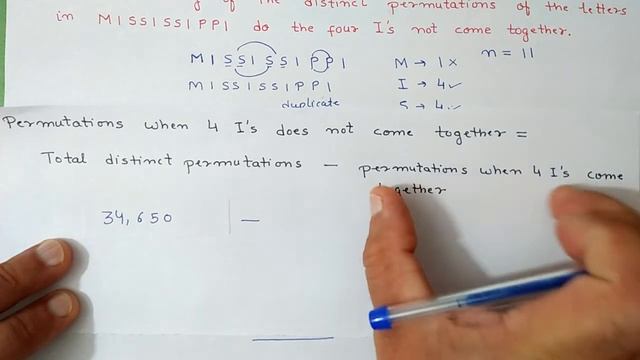 of the distinct permutations of the letters
in MISSISSIPPI do the four I's not come together.
MISSISSIPPI M → 1 × n = 11
MISSISSIPPI I → 4 ✓
duplicate S → 4 ✓
Permutations when 4 I's does not come together =
Total distinct permutations — permutations when 4 I's come
34,650 —